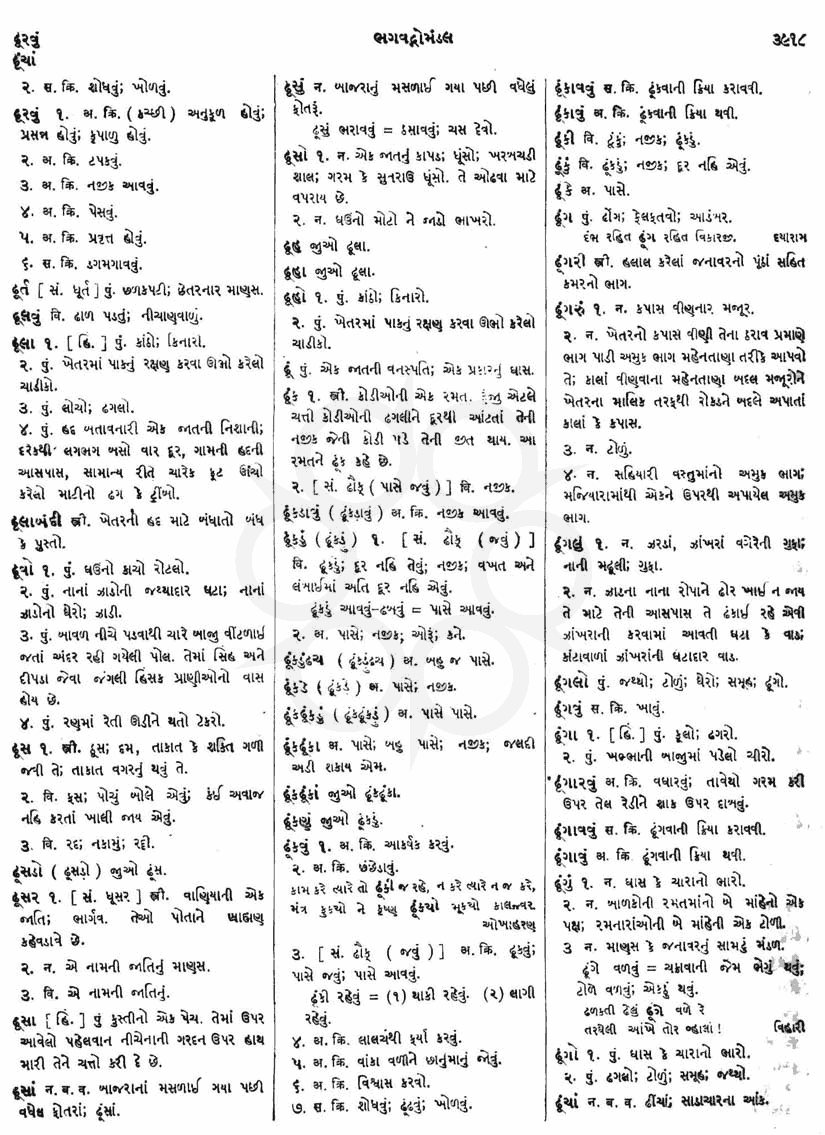 ઢૂરવું
ઢૂંચાં
ભગવદ્ગોમંડલ
૩૯૧૮
૨. સ. ક્રિ. શોધવું; ખોળવું.
ઢૂરવું ૧. અ. ક્રિ. ( કચ્છી ) અનુકૂળ હોવું;
પ્રસન્ન હોવું; કૃપાળુ હોવું.
૨. અ. ક્રિ. ટપકવું.
૩. અ. ક્રિ. નજીક આવવું.
૪. અ. ક્રિ. પેસવું.
૫. અ. ક્રિ. પ્રવૃત્ત હોવું.
૬. સ. ક્રિ. ડગમગાવવું.
ઢૂર્ત [ સં. ધૂર્ત ] પું. છળકપટી; છેતરનાર માણુસ.
ઢૂલવું વિ. ઢાળ પડતું; નીચાણુવાળું.
ઢૂલા ૧. [ હિં. ] પું. કાંઠો; કિનારો.
૨. પું. ખેતરમાં પાકનું રક્ષણુ કરવા ઊભો કરેલો
ચાડીકો.
૩. પું. લોચો; ઢગલો.
૪. પું. હદ બતાવનારી એક જાતની નિશાની;
દરેકથી લગભગ બસો વાર દૂર, ગામની હદની
આસપાસ, સામાન્ય રીતે ચારેક ફૂટ ઊંચો
કરેલો માટીનો ઢગ કે ટીંબો.
ઢૂલાબંદી સ્ત્રી. ખેતરની હદ માટે બંધાતો બંધ
કે પુસ્તો.
ઢૂવો ૧. પું. ઘઉંનો કાચો રોટલો.
૨. પું. નાનાં ઝાડોની જથ્થાદાર ઘટા; નાનાં
ઝાડોનો ઘેરો; ઝાડી.
૩. પું. બાવળ નીચે પડવાથી ચારે બાજુ વીંટળાઈ
જતાં અંદર રહી ગયેલી પોલ. તેમાં સિંહ અને
દીપડા જેવા જંગલી હિંસક પ્રાણીઓનો વાસ
હોય છે.
૪. પું. રણુમાં રેતી ઊડીને થતો ટેકરો.
ઢૂસ ૧. સ્ત્રી. ઠૂસ; દમ, તાકાત કે શક્તિ ગળી
જવી તે; તાકાત વગરનું થવું તે.
૨. વિ. ફસ; પોચું બોલે એવું; કંઈ અવાજ
નહિ કરતાં ખાલી જાય એવું.
૩. વિ. રદ; નકામું; રદ્દી.
ઢૂસડો ( ઢૂસડ઼ો ) જુઓ ઢૂંસ.
ઢૂસર ૧. [ સં. ધૂસર ] સ્ત્રી. વાણિયાની એક
જાતિ; ભાર્ગવ. તેઓ પોતાને બ્રાહ્મણુ
કહેવડાવે છે.
૨. ન. એ નામની જાતિનું માણુસ.
૩. વિ. એ નામની જાતિનું.
ઢૂસા [ હિં. ] પું કુસ્તીનો એક પેચ. તેમાં ઉપર
આવેલો પહેલવાન નીચેનાની ગરદન ઉપર હાથ
મારી તેને ચત્તો કરી દે છે.
ઢૂસાં ન. બ. વ. બાજરાનાં મસળાઈ ગયા પછી
વધેલ ફોતરાં; ઢૂંસાં.
ઢૂસું ન. બાજરાનું મસળાઈ ગયા પછી વધેલું
ફોતરૂં.
ઢૂસું ભરાવવું = ઠસાવવું; ચસ દેવો.
ઢૂસો ૧. ન. એક જાતનું કાપડ; ધૂંસો; ખરબચડી
શાલ; ગરમ કે સુતરાઉ ધૂંસો. તે ઓઢવા માટે
વપરાય છે.
૨. ન. ઘઉંનો મોટો ને જાડો ભાખરો.
ઢૂહ જુઓ ઢૂલા.
ઢૂહા જુઓ ઢૂલા.
ઢૂહો ૧. પું. કાંઠો; કિનારો.
૨. પું. ખેતરમાં પાકનું રક્ષણુ કરવા ઊભો કરેલો
ચાડીકો.
ઢૂં પું. એક જાતની વનસ્પતિ; એક પ્રકારનું ઘાસ.
ઢૂંક ૧. સ્ત્રી. કોડીઓની એક રમત. કુંજી એટલે
ચત્તી કોડીઓની ઢગલીને દૂરથી આંટતાં તેની
નજીક જેની કોડી પડે તેની જીત થાય. આ
રમતને ઢૂંક કહે છે.
૨. [ સં. ઢૌક્ ( પાસે જવું ) ] વિ. નજીક.
ઢૂંકડાવું ( ઢૂંકડ઼ાવું ) અ. ક્રિ. નજીક આવવું.
ઢૂંકડું ( ઢૂંકડ઼ું ) ૧. [ સં. ઢૌક્ ( જવું ) ]
વિ. ઢૂકડું; દૂર નહિ તેવું; નજીક; વખત અને
લંબાઈમાં અતિ દૂર નહિ એવું.
ઢૂંકડું આવવું-ઢબવું = પાસે આવવું.
૨. અ. પાસે; નજીક; ઓરૂં; કને.
ઢૂંકડુંઢચ ( ઢૂંકડ઼ુંઢચ ) અ. બહુ જ પાસે.
ઢૂંકડે ( ઢૂંકડ઼ે ) અ. પાસે; નજીક.
ઢૂંકઢૂંકડું ( ઢૂંકઢૂંકડ઼ું ) અ. પાસે પાસે.
ઢૂંકઢૂંકા અ. પાસે; બહુ પાસે; નજીક; જલદી
અડી શકાય એમ.
ઢૂંકઢૂંકાં જુઓ ઢૂંકઢૂંકા.
ઢૂંકણું જુઓ ઢૂંકડું.
ઢૂંકવું ૧. અ. ક્રિ. આકર્ષક કરવું.
૨. અ. ક્રિ. છંછેડાવું.
કામ કરે ત્યારે તો ઢૂંકી જ રહે, ન કરે ત્યારે ન જ કરે,
મંત્ર ફુકચો ને કૃષ્ણ ઢૂંકચો મૂકચો કાલજ્વર.
ઓખાહરણ
૩. [ સં. ઢૌક્ ( જવું ) ] અ. ક્રિ. ઢૂકવું;
પાસે જવું; પાસે આવવું.
ઢૂંકી રહેવું = (૧) થાકી રહેવું. (૨) લાગી
રહેવું.
૪. અ. ક્રિ. લાલચથી ફર્યા કરવું.
૫. અ. ક્રિ. વાંકા વળીને છાનુંમાનું જોવું.
૬. અ. ક્રિ. વિશ્વાસ કરવો.
૭. સ. ક્રિ. શોધવું; ઢૂંઢવું; ખોળવું.
ઢૂંકાવવું સ. ક્રિ. ઢૂંકવાની ક્રિયા કરાવવી.
ઢૂંકાવું અ. ક્રિ. ઢૂંકવાની ક્રિયા થવી.
ઢૂંકી વિ. ટૂંકું; નજીક; ઢૂંકડું.
ઢૂંકું વિ. ઢૂંકડું; નજીક; દૂર નહિ એવું.
ઢૂંકે અ. પાસે.
ઢૂંગ પું. ઢોંગ; ફેલફતવો; આડંબર.
દંભ રહિત ઢૂંગ રહિત વિકારજી. દયારામ
ઢૂંગરી સ્ત્રી. હલાલ કરેલાં જનાવરનો પૂંઠાં સહિત
કમરનો ભાગ.
ઢૂંગરું ૧. ન. કપાસ વીણુનાર મજૂર.
૨. ન. ખેતરનો કપાસ વીણી તેના ઠરાવ પ્રમાણે
ભાગ પાડી અમુક ભાગ મહેનતાણા તરીકે આપવો
તે; કાલાં વીણુવાના મહેનતાણા બદલ મજૂરોને
ખેતરના માલિક તરફથી રોકડને બદલે અપાતાં
કાલાં કે કપાસ.
૩. ન. ટોળું.
૪. ન. સહિયારી વસ્તુમાંનો અમુક ભાગ;
મજિયારામાંથી એકને ઉપરથી અપાયેલ અમુક
ભાગ.
ઢૂંગલું ૧. ન. ઝરડાં, ઝાંખરાં વગેરેની ગુફા;
નાની મઢૂલી; ગુફા.
૨. ન. ઝાડના નાના રોપાને ઢોર ખાઈ ન જાય
તે માટે તેની આસપાસ તે ઢંકાઈ રહે એવી
ઝાંખરાની કરવામાં આવતી ઘટા કે વાડ;
કાંટાવાળાં ઝાંખરાંની ઘટાદાર વાડ.
ઢૂંગલો પું. જથ્થો; ટોળું; ઘેરો; સમૂહ; ઢૂંગો.
ઢૂંગવું સ. ક્રિ. ખાવું.
ઢૂંગા ૧. [ હિં. ] પું. કૂલો; ઢગરો.
૨. પું. ખભ્ભાની બાજુમાં પડેલો ચીરો.
ઢૂંગારવું અ. ક્રિ. વધારવું; તાવેથો ગરમ કરી
ઉપર તેલ રેડીને શાક ઉપર દાબવું.
ઢૂંગાવવું સ. ક્રિ. ઢૂંગવાની ક્રિયા કરાવવી.
ઢૂંગાવું અ. ક્રિ. ઢૂંગવાની ક્રિયા થવી.
ઢૂંગું ૧. ન. ઘાસ કે ચારાનો ભારો.
૨. ન. બાળકોની રમતમાંનો બે માંહેનો એક
પક્ષ; રમનારાંઓની બે માંહેની એક ટોળી.
૩ ન. માણુસ કે જનાવરનું સામટું મંડળ.
ઢૂંગે વળવું = ચક્રાવાની જેમ ભેગું થવું;
ટોળે વળવું; એકઠું થવું.
ઢળકતી ઢેલું ઢૂંગે વળે રે
તરઘેલી આંખે તોર બ્હાલાં ! વિહારી
ઢૂંગો ૧. પું. ઘાસ કે ચારાનો ભારો.
૨. પું. ઢગલો; ટોળું; સમૂહ; જથ્થો.
ઢૂંચાં ન. બ. વ. ઢીંચાં; સાડાચારના આંક.